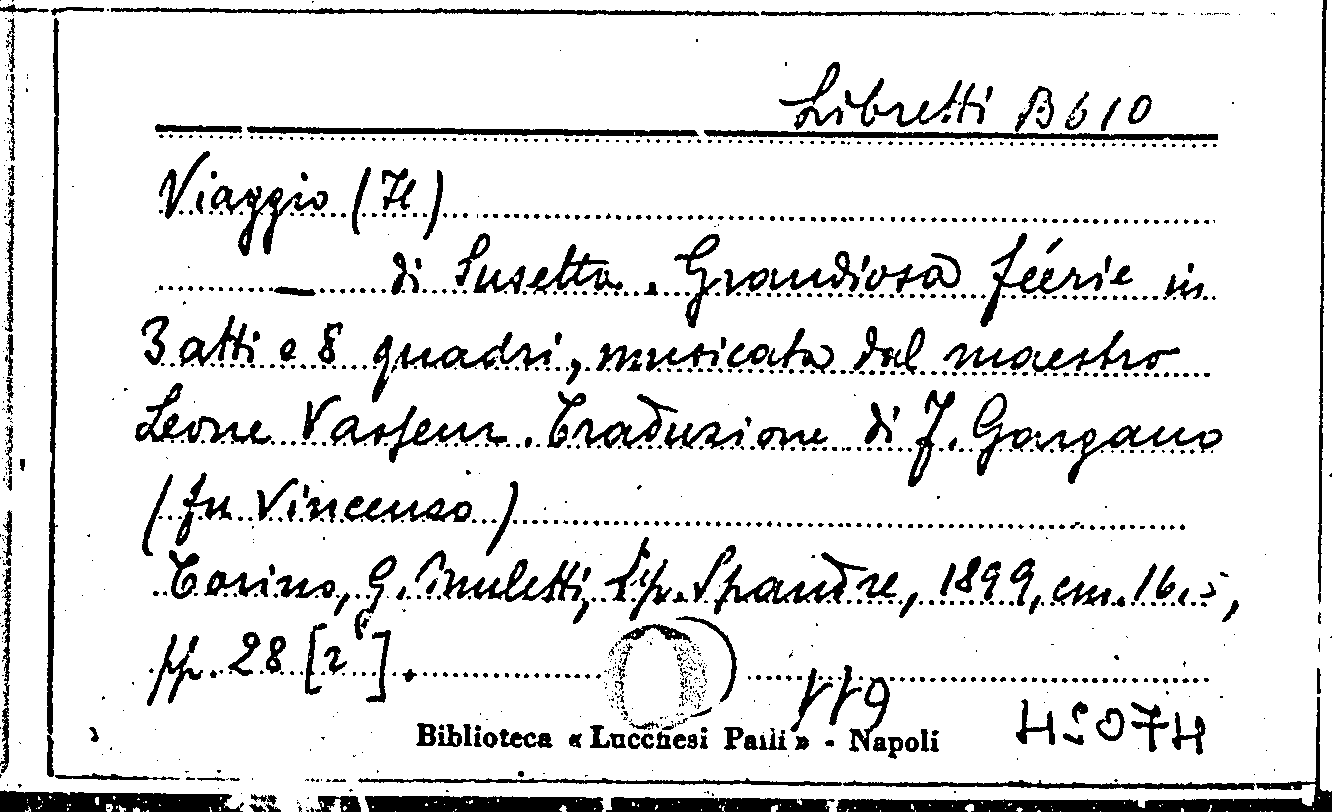 Libretti B 610
Viaggio (Il)
— di Susetta. Grandiosa féerie in
3 atti e 8 quadri, musicata dal maestro
Leone Vasseur. Traduzione di J. Gargano
(fu Vincenzo)
Torino, G. Tip. Spandre, 1899, cm. 16.5,
pp. 28 [2].
119
Biblioteca « Lucchesi Palli » - Napoli